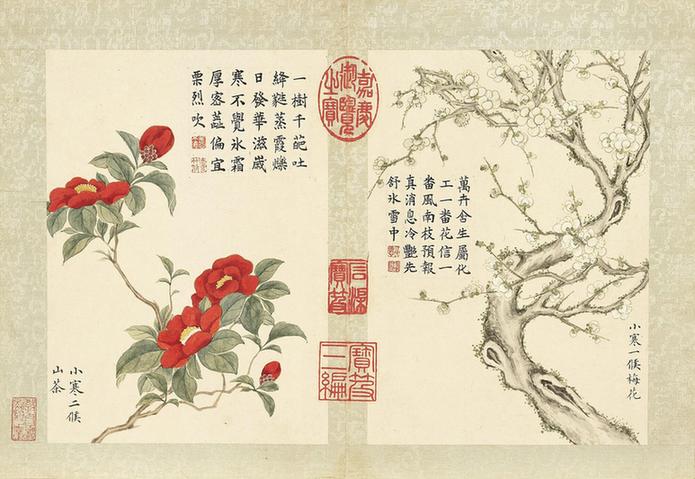 小寒一候梅花
萬卉含生屬化
工一番花信一
番風南枝預報
真消息冷豔先
舒氷雪中
嘉慶
御覽
之寶
石渠
寶笈
寶笈
三編
一樹千葩吐
絳蒸霞爍
日發華滋歲
寒不覺氷霜
厚密蕋偏宜
栗烈吹
小寒二候
山茶